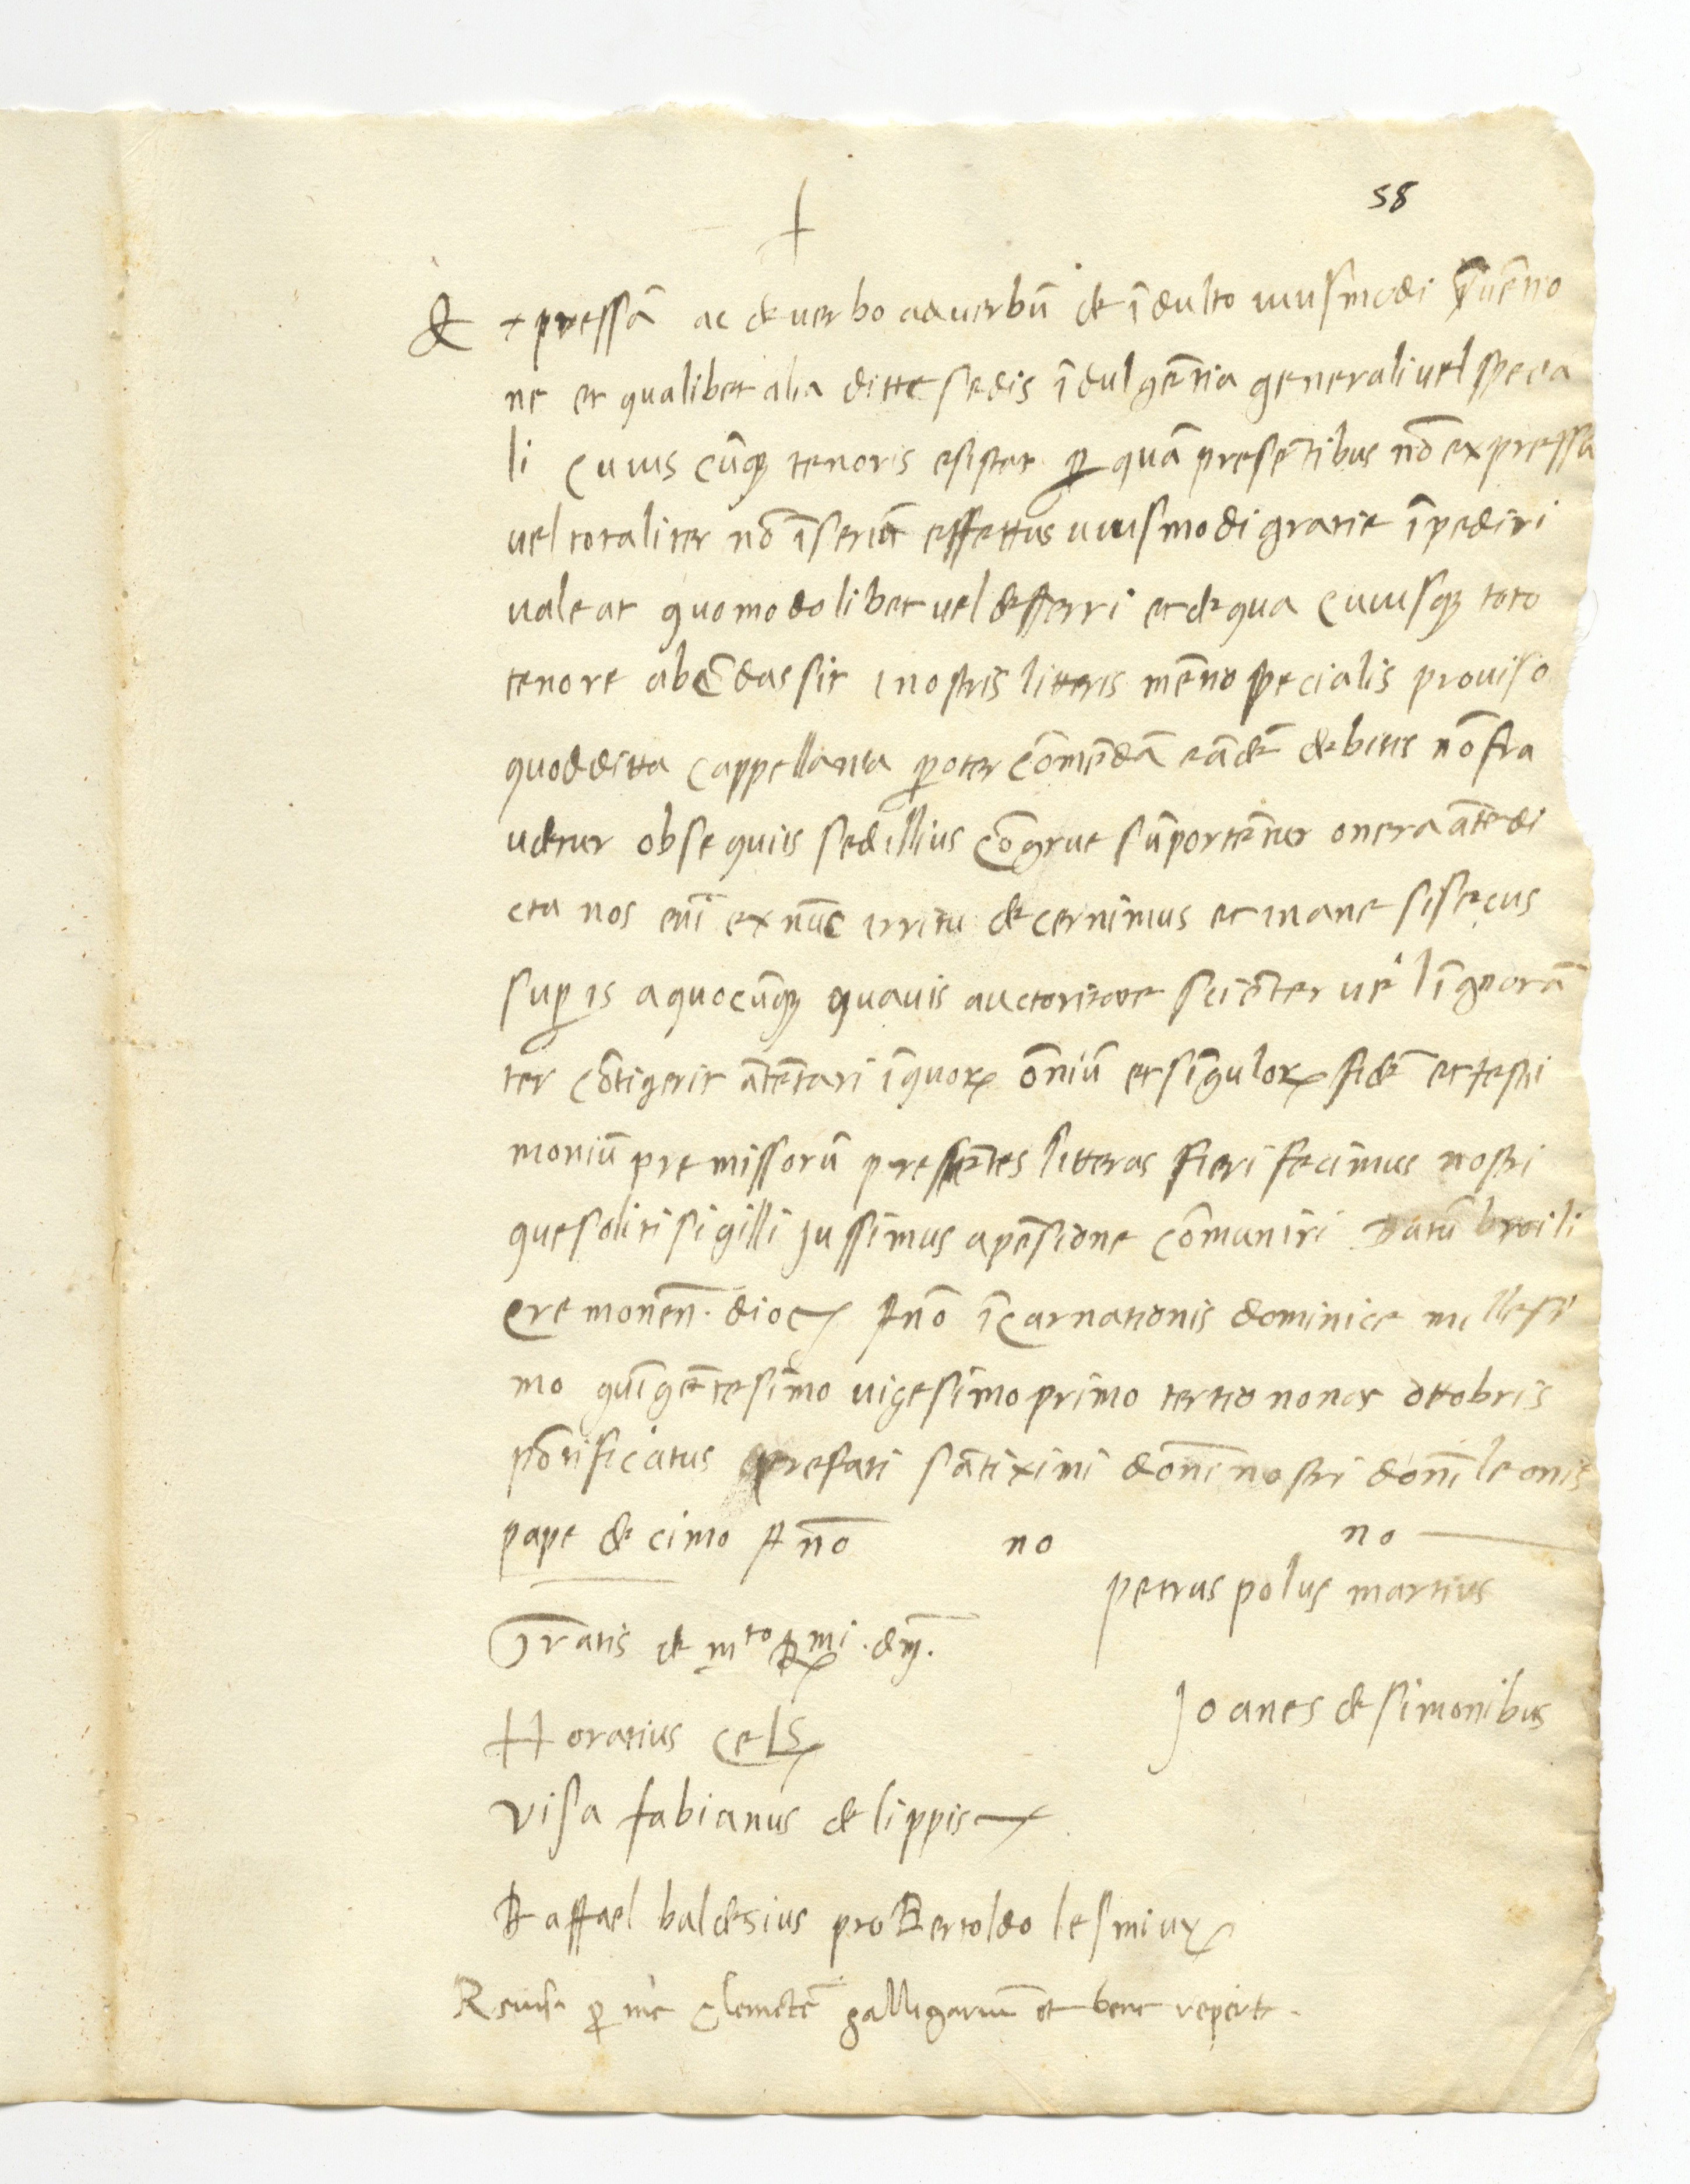 58
Expressā ac de uerbo ad uerbū de īdulto uiusmodi īuētio
ne et qualibet alia ditte sedis īdulgētia generali uel specia
li cuius cūq₃ tenoris esistat ꝑ quā presētibus nō expressa
uel totaliter nō īsertā effettus uiusmodi gratie īpediri
ualeat quomodolibet uel defferri et de qua cuiusq₃ toto
tenore abēdas sit i nostris litteris mētio specialis prouiso
quod ditta cappellania ꝓpter cōmēdā eādē debitis nō fra
udetur obsequiis sed illius cōgrue sūportētur onera ātedi
cta nos enī ex nūc irritū decernimus et inane si secus
suꝑ is a quocūq₃ quauis auctoritate sciēter uel īgnorā
ter cōtigerit ātētari ī quoꝝ ōniū et sīguloꝝ fidē et testi
moniū premissorū presētes litteras fieri fecimus nostri
que soliti sigilli jussimus apēsione cōmuniri Datū broili
cremonen̄. dioc Āno īcarnationis dominice millesi
mo quīgētesimo uigesimo primo tertio nonas ottobris
pōtificatus prefati sātiximi domī nostri domī leonis
pape decimo Āno no no
petrus polus martius
Gratis de mto Rmi. dn̄.
Joanes de simonibus
Horatius Cels
Visa fabianus de lippis
Raffael baldesius pro Bertoldo
Reuisa ꝑ me Clemētē galligarium et bene repert.